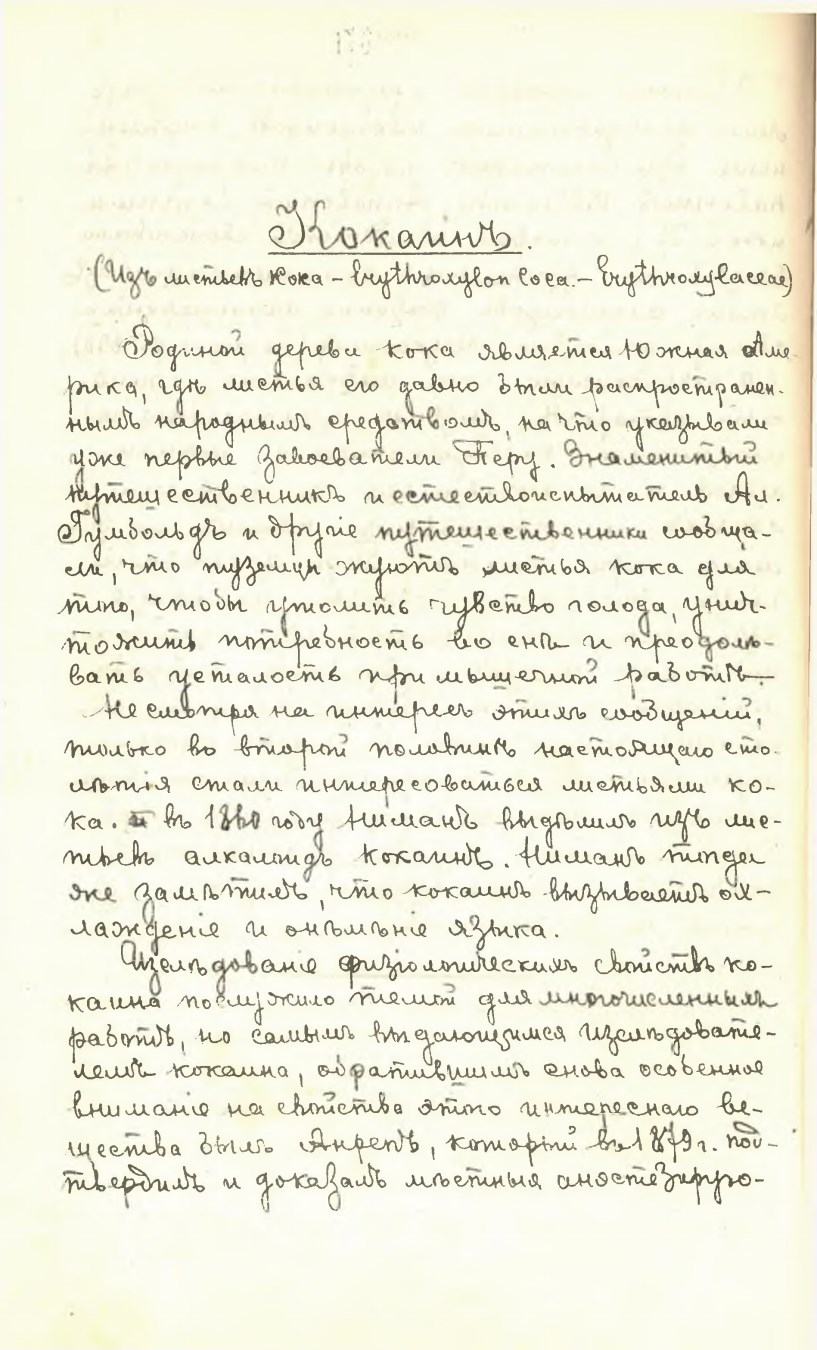 Кокаинъ.
(Изъ листьевъ Кока – Erythroxylon Coca. – Erythroxylaceae)
Родиной дерева кока является Южная Аме-
рика, гдѣ листья его давно были распространен-
нымъ народнымъ средствомъ, на что указывали
уже первые завоеватели Перу. Знаменитый
путешественникъ и естествоиспытатель Ал.
Гумбольдъ и другіе путешественники сообща-
ли, что туземцы жуютъ листья кока для
того, чтобы утолить чувство голода, унич-
тожить потребность во снѣ и преодолѣ-
вать усталость при мышечной работѣ.
Не смотря на интересъ этихъ сообщеній,
только во второй половинѣ настоящаго сто-
лѣтія стали интересоваться листьями ко-
ка. и въ 1860 году Ниманъ выдѣлилъ изъ лис-
тьевъ алкалоидъ Кокаинъ. Ниманъ тогда
же замѣтилъ, что кокаинъ вызываетъ ох-
лажденіе и онѣмѣніе языка.
Изслѣдованіе физіологическихъ свойствъ ко-
каина послужило темой для многочисленныхъ
работъ, но самымъ выдающимся изслѣдовате-
лемъ кокаина, обратившимъ снова особенное
вниманіе на свойства этого интереснаго ве-
щества былъ Анрепъ, который въ 1879 г. под-
твердилъ и доказалъ мѣстныя анэстезирую-